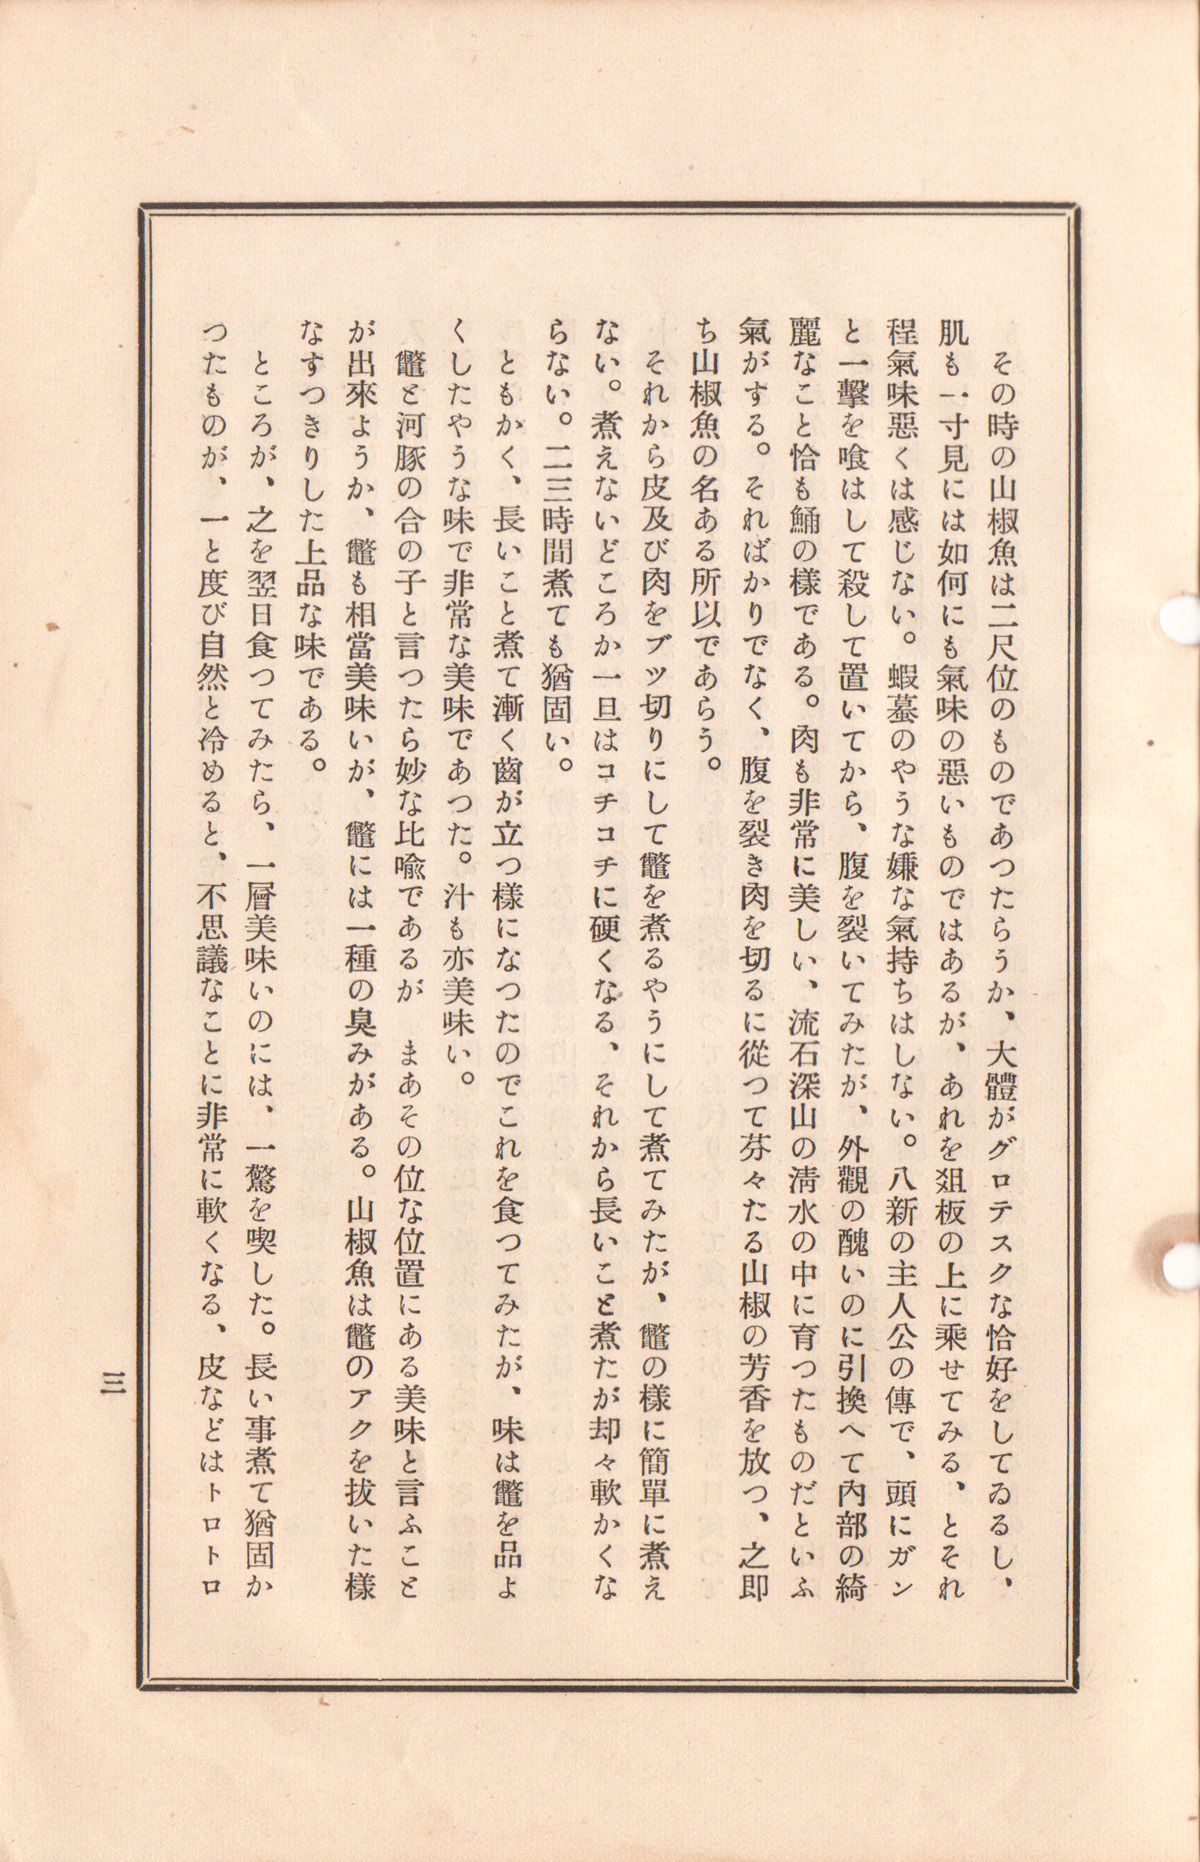 その時の山椒魚は二尺位のものであつたらうか、大體がグロテスクな恰好をしてゐるし、
肌も一寸見には如何にも氣味の惡いものではあるが、あれを爼板の上に乘せてみる、とそれ
程氣味惡くは感じない。蝦蟇のやうな嫌な氣持ちはしない。八新の主人公の傳で、頭にガン
と一擊を喰はして殺して置いてから、腹を裂いてみたが、外觀の醜いのに引換へて內部の綺
麗なこと恰も鯒の樣である。肉も非常に美しい、流石深山の淸水の中に育つたものだといふ
氣がする。そればかりでなく、腹を裂き肉を切るに從つて芬々たる山椒の芳香を放つ、之即
ち山椒魚の名ある所以であらう。
それから皮及び肉をブツ切りにして鼈を煮るやうにして煮てみたが、鼈の樣に簡單に煮え
ない。煮えないどころか一旦はコチコチに硬くなる、それから長いこと煮たが却々軟かくな
らない。二三時間煮ても猶固い。
ともかく、長いこと煮て漸く齒が立つ樣になつたのでこれを食つてみたが、味は鼈を品よ
くしたやうな味で非常な美味であつた。汁も亦美味い。
鼈と河豚の合の子と言つたら妙な比喩であるが　まあその位な位置にある美味と言ふこと
が出來ようか、鼈も相當美味いが、鼈には一種の臭みがある。山椒魚は鼈のアクを拔いた樣
なすつきりした上品な味である。
ところが、之を翌日食つてみたら、一層美味いのには、一驚を喫した。長い事煮て猶固か
つたものが、一と度び自然と冷めると、不思議なことに非常に軟くなる、皮などはトロトロ
三